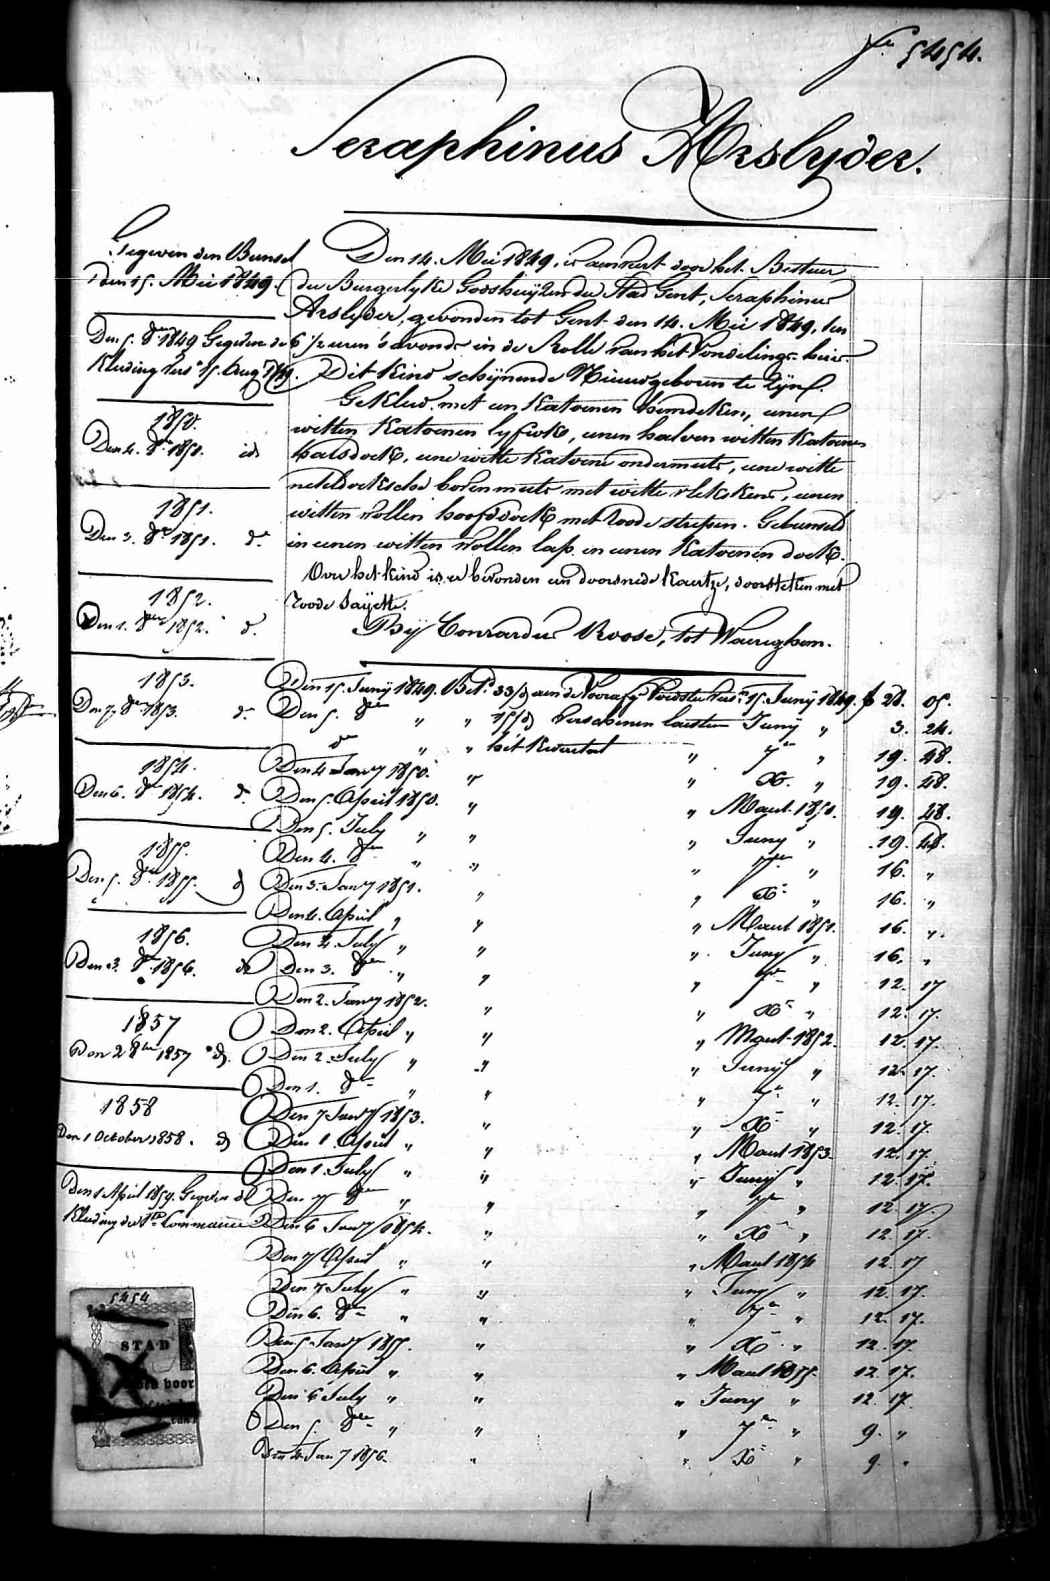 5454.
Seraphinus Arslyder.
Gegeven den Bunsel
Den 15. Mei 1849.
Den 5. 8er 1849 Gegeven de
Kleding vers. 15. Aug. 1849.
1850.
Den 4. 8er 1850. id
1851.
Den 3. 8er 1851. do
1852.
Den 1. 8er 1852. do
1853.
Den 7. 8er 1853. do
1854.
Den 6. 8er 1854. do
1855.
Den 5. 8er 1855. do
1856.
Den 3. 8er 1856. do
1857
Den 2 8ber 1857 do
1858
Den 1 October 1858. do
Den 1 April 1859. Gegeven de
Kleding der 1ste Communie
Den 14. Mei 1849, is aenveert door het Bestuer
der Burgerlyke Godshuyzen der Stad Gent, Seraphinus
Arslyder, gevonden tot Gent den 14. Mei 1849, ten
6 1/2 uren 's avonds in de Rolle van het Vondelings-huis.
Dit Kind schijnende Nieuwgeboren te zijn.
Gekleed met een Katoenen hemdeken, eenen
witten Katoenen lyfrok, eenen halven witten Katoenen
halsdoek, eene witte Katoene ondermuts, eene witte
neteldoeksche bovenmuts met witte vlekskens, eenen
witten wollen hoofddoek met roode strepen. Gebunseld
in eenen witten wollen lap en eenen Katoenen doek.
Over het Kind is er bevonden een doorsnede Kaertje, doorsteken met
roode Sayette.
Bij Conrardus Roose, tot Waereghem.
Den 15. Junij 1849. Betd 33/d aen de Voorafg. Voedster vers. 15. Junij 1849. f 28. 05.
Den 5. 8er " " 15/d verschenen laetsten Junij " 3. 24.
do " " het Kwartael " 7er " 19. 48.
Den 4 Jany 1850. " " Xr " 19. 48.
Den 5. April 1850. " " Maart 1850. 19. 48.
Den 5. July " " " Juny " 19. 48.
Den 4. 8er " " " 7er " 16. "
Den 3. Jany 1851. " " Xr " 16. "
Den 4. April " " " Maart 1851. 16. "
Den 2. July " " " Juny " 16. "
Den 3. 8er " " " 7er " 12. 17
Den 2. Jany 1852. " " Xr " 12. 17.
Den 2. April " " " Maart 1852. 12. 17.
Den 2. July " " " Juny " 12. 17.
Den 1. 8er " " " 7er " 12. 17.
Den 7 Jany 1853. " " Xr " 12. 17.
Den 1. April " " " Maart 1853. 12. 17.
Den 1. July " " " Juny " 12. 17.
Den 7 8er " " " 7er " 12. 17
Den 6 Jany 1854. " " Xr " 12. 17.
Den 7 April " " " Maart 1854 12. 17
Den 7 July " " " Juny " 12. 17.
Den 6. 8er " " " 7er " 12. 17.
Den 5 Jany 1855. " " Xr " 12. 17.
Den 6. April " " " Maart 1855. 12. 17.
Den 6 July " " " Juny " 12. 17.
Den 5. 8er " " " 7er " 9. "
Den 4 Jany 1856. " " Xr " 9. "
5454
STAD
voor